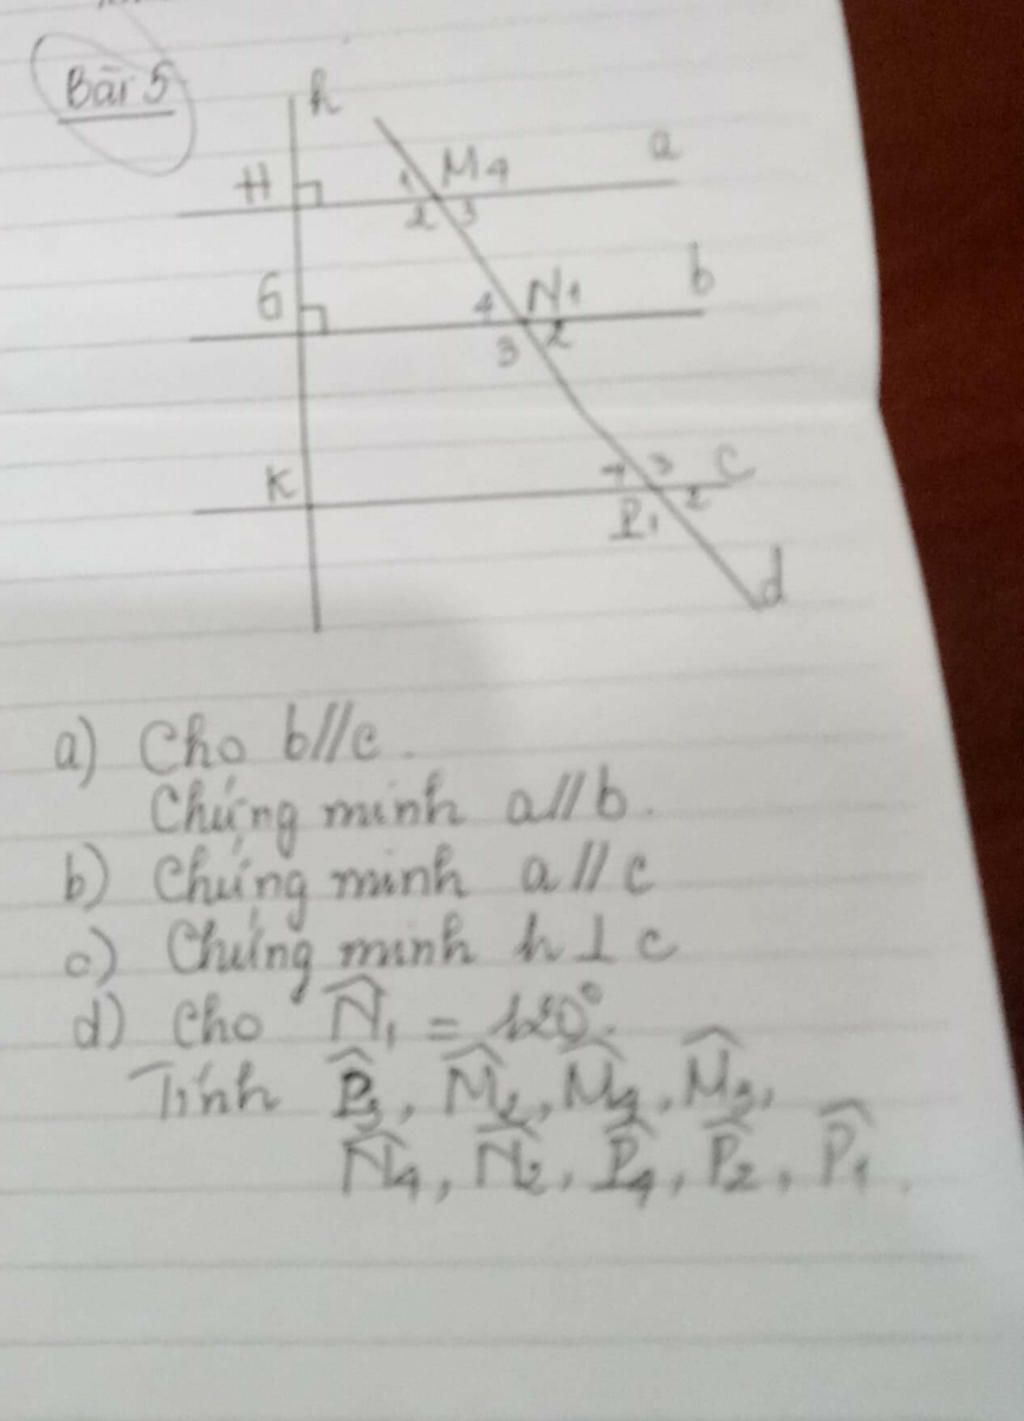 Bài 5
h
a
H
1 M 4
2 3
b
G
4 N 1
3 2
K
4 3 c
P 1 2
d
a) Cho b//c.
Chứng minh a//b.
b) Chứng minh a//c
c) Chứng minh h⊥c
d) Cho N̂₁ = 120°.
Tính P̂₃, M̂₂,
N̂₄, N̂₂, P̂₄, P̂₂, P̂₁.